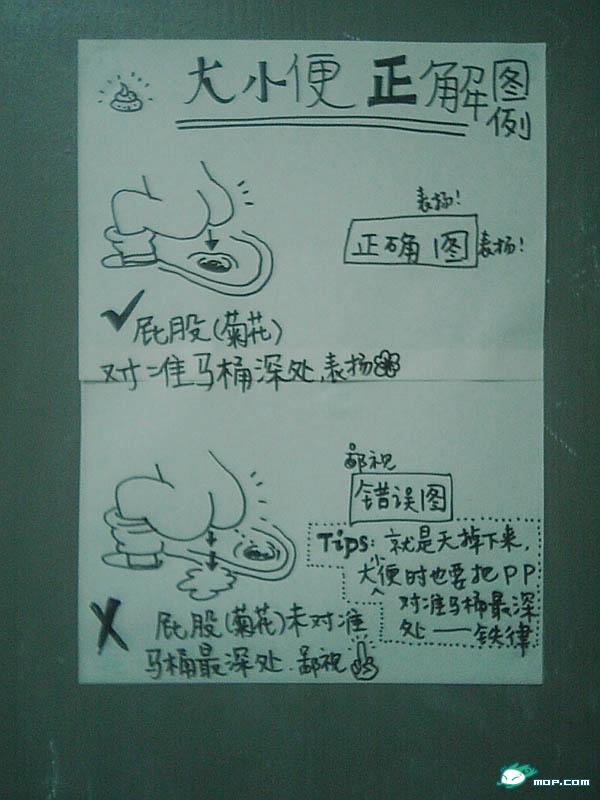 大小便正解图例
表扬!
正确图
表扬!
屁股(菊花)
对准马桶深处,表扬
鄙视
错误图
Tips: 就是天掉下来,
大小便时也要把PP
对准马桶最深
处——铁律
屁股(菊花)未对准
马桶最深处.鄙视
mop.com